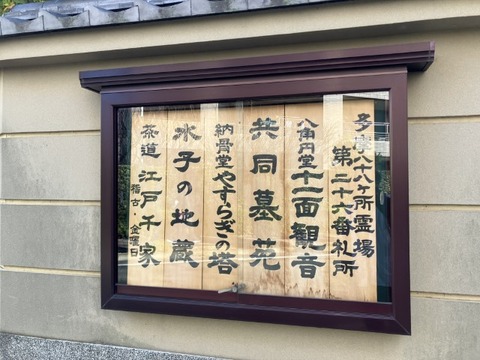 多摩八十八ヶ所霊場
第二十六番札所
八角円堂十一面観音
共同墓苑
納骨堂やすらぎの塔
水子の地蔵
茶道江戸千家
稽古・金曜日